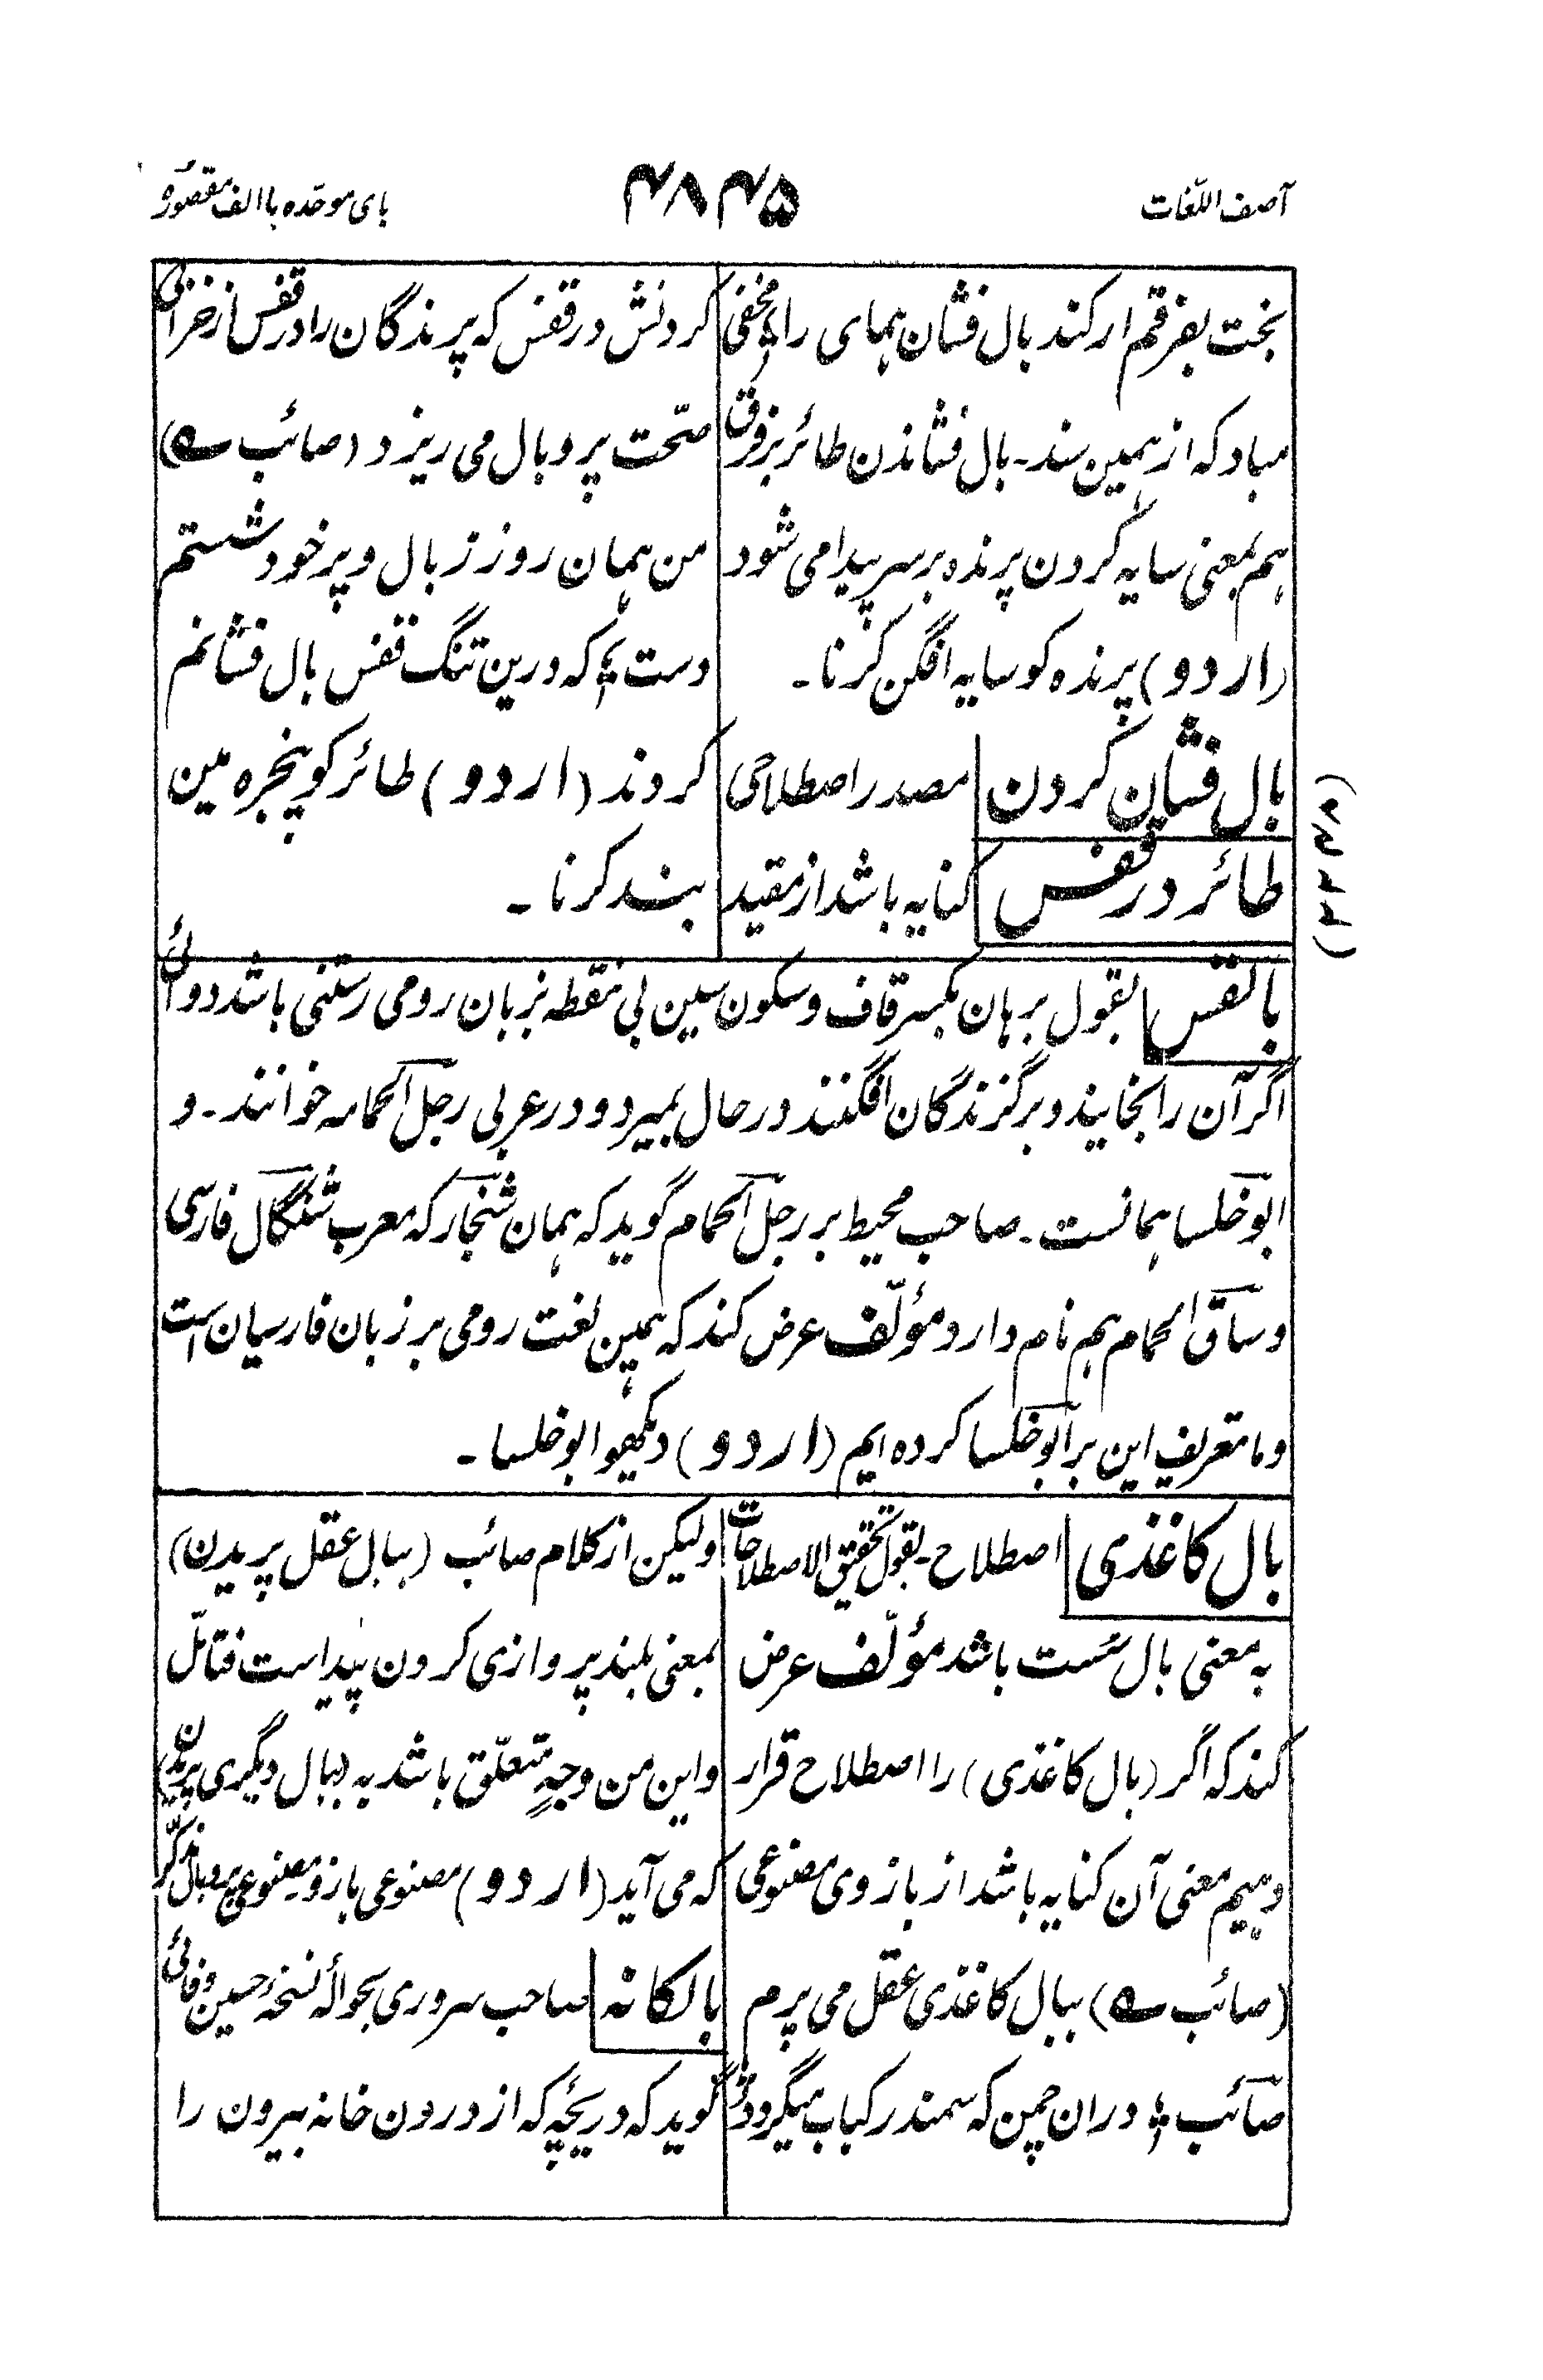 آصف اللّغات
۴۸۴۵
بای موحّده با الف مقصوره
بخت بفرقم ار کند بال فشان ہمای را ؛ مخفی
مباد کہ از ہمین سند۔ بال فشاندن طائر بر فرق
ہم بمعنی سایہ کردن پرندہ بر سر پیدا می شود
(اردو) پرندہ کو سایہ افگن کرنا۔
بال فشان کردن مصدر اصطلاحی
طائر در قفس کنایہ باشد از مقید
کردنش در قفس کہ پرندگان را در قفس از خرابی
صحّت پر و بال می ریزد (صائب ے)
من ہمان روز ز بال و پر خود شستم
دست ؛ کہ درین تنگ قفس بال فشانم
کردند (اردو) طائر کو پنجرہ مین
بند کرنا۔
بالقس بقول برہان بکسر قاف و سکون سین بی نقطہ بزبان رومی رستنی باشد دوائی
اگر آن را بخایند و بر گزندگان افگنند در حال بمیرد و در عربی رجل الحمامہ خوانند۔ و
ابوخلسا ہمانست۔ صاحب محیط بر رجل الحمام گوید کہ ہمان شنجار کہ معرب شنگال فارسی
و ساق الحمام ہم نام دارد مؤلّف عرض کند کہ ہمین لغت رومی بر زبان فارسیان است
و ما تعریف این بر ابوخلسا کردہ ایم (اردو) دیکھو ابوخلسا۔
بال کاغذی اصطلاح۔ بقول تحقیق الاصطلاحات
بہ معنی بال سُست باشد مؤلّف عرض
کند کہ اگر (بال کاغذی) را اصطلاح قرار
دہیم معنی آن کنایہ باشد از بازوی مصنوعی
(صائب ے) ببال کاغذی عقل می پرم
صائب ؛ دران چمن کہ سمندر کباب میگردد ؛
ولیکن از کلام صائب (ببال عقل پریدن)
بمعنی بلند پروازی کردن پیداست فتامّل
و این من وجہٍ متعلّق باشد بہ ببال دیگری پریدن
کہ می آید (اردو) مصنوعی بازو۔ مصنوعی پر و بال۔ مذکّر
بالکانہ صاحب سروری بحوالۂ نسخۂ حسین وفائی
گوید کہ دریچۂ کہ از درون خانہ بیرون را